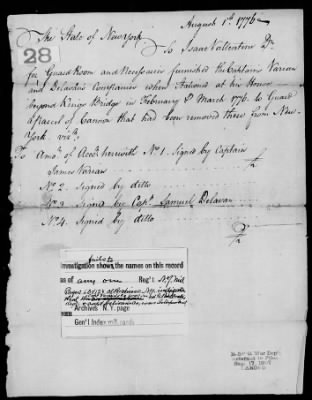 August 1st 1776
The State of New York
To Isaac Valentine Dr
28
for Guard Room and Necessaries furnished the Captains Varian
and Delavans Companies when Stationed at his House
beyond Kings Bridge in February & March 1776. to Guard
a parcel of Cannon that had been removed there from New-
York. vizt.
To Amot. of Acct. herewith No 1. Signed by Captain
James Varian
No 2. Signed by ditto
No 3. Signed by Capt. Samuel Delavan
No 4. Signed by ditto
Investigation fails to shows the names on this record
as of any one Reg't N.Y. Mil
Archives N.Y. page
Gen'l Index mil. cards